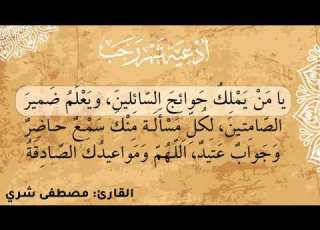 أَدْعِيَة شَهْر رَجَب
يا مَنْ يَمْلِكُ حَوائِجَ السّائِلينَ، ويَعْلَمُ ضَميرَ
الصّامتينَ، لكُلِّ مَسْأَلَة مِنْكَ سَمْعٌ حاضِرٌ
وَجَوابٌ عَتيدٌ، اَللّهُمَّ وَمَواعيدُكَ الصّادِقَةُ
القارئ: مصطفى شري